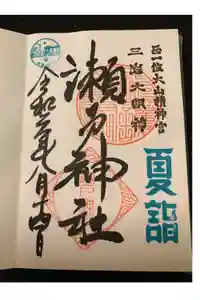 正一位大山積神宮
三島大明神
夏詣
瀬戸神社
令和二年八月十四日